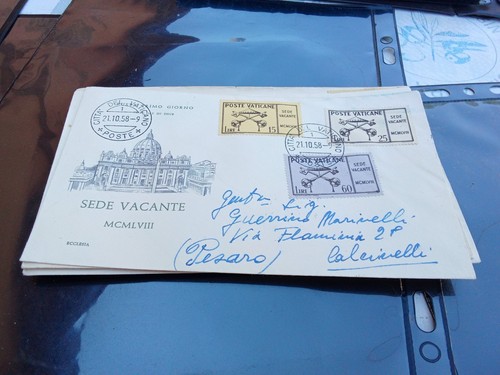 CITTÀ DEL VATICANO
21.10.58-9
POSTE
PRIMO GIORNO
POSTE VATICANE
SEDE
VACANTE
MCMLVIII
LIRE 15
POSTE VATICANE
SEDE
VACANTE
MCMLVIII
LIRE 25
CITTÀ DEL VATICANO
21.10.58-9
POSTE VATICANE
SEDE
VACANTE
MCMLVIII
LIRE 60
SEDE VACANTE
MCMLVIII
ECCLESIA
Guerrino Marinelli
Via Flaminia 28
(Pesaro) Calcinelli